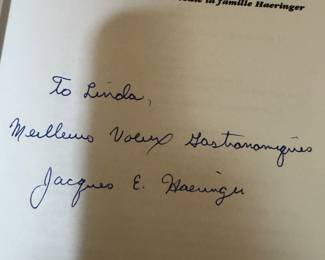 la famille Haeringer
To Linda,
Meilleurs Voeux Gastronomiques
Jacques E. Haeringer